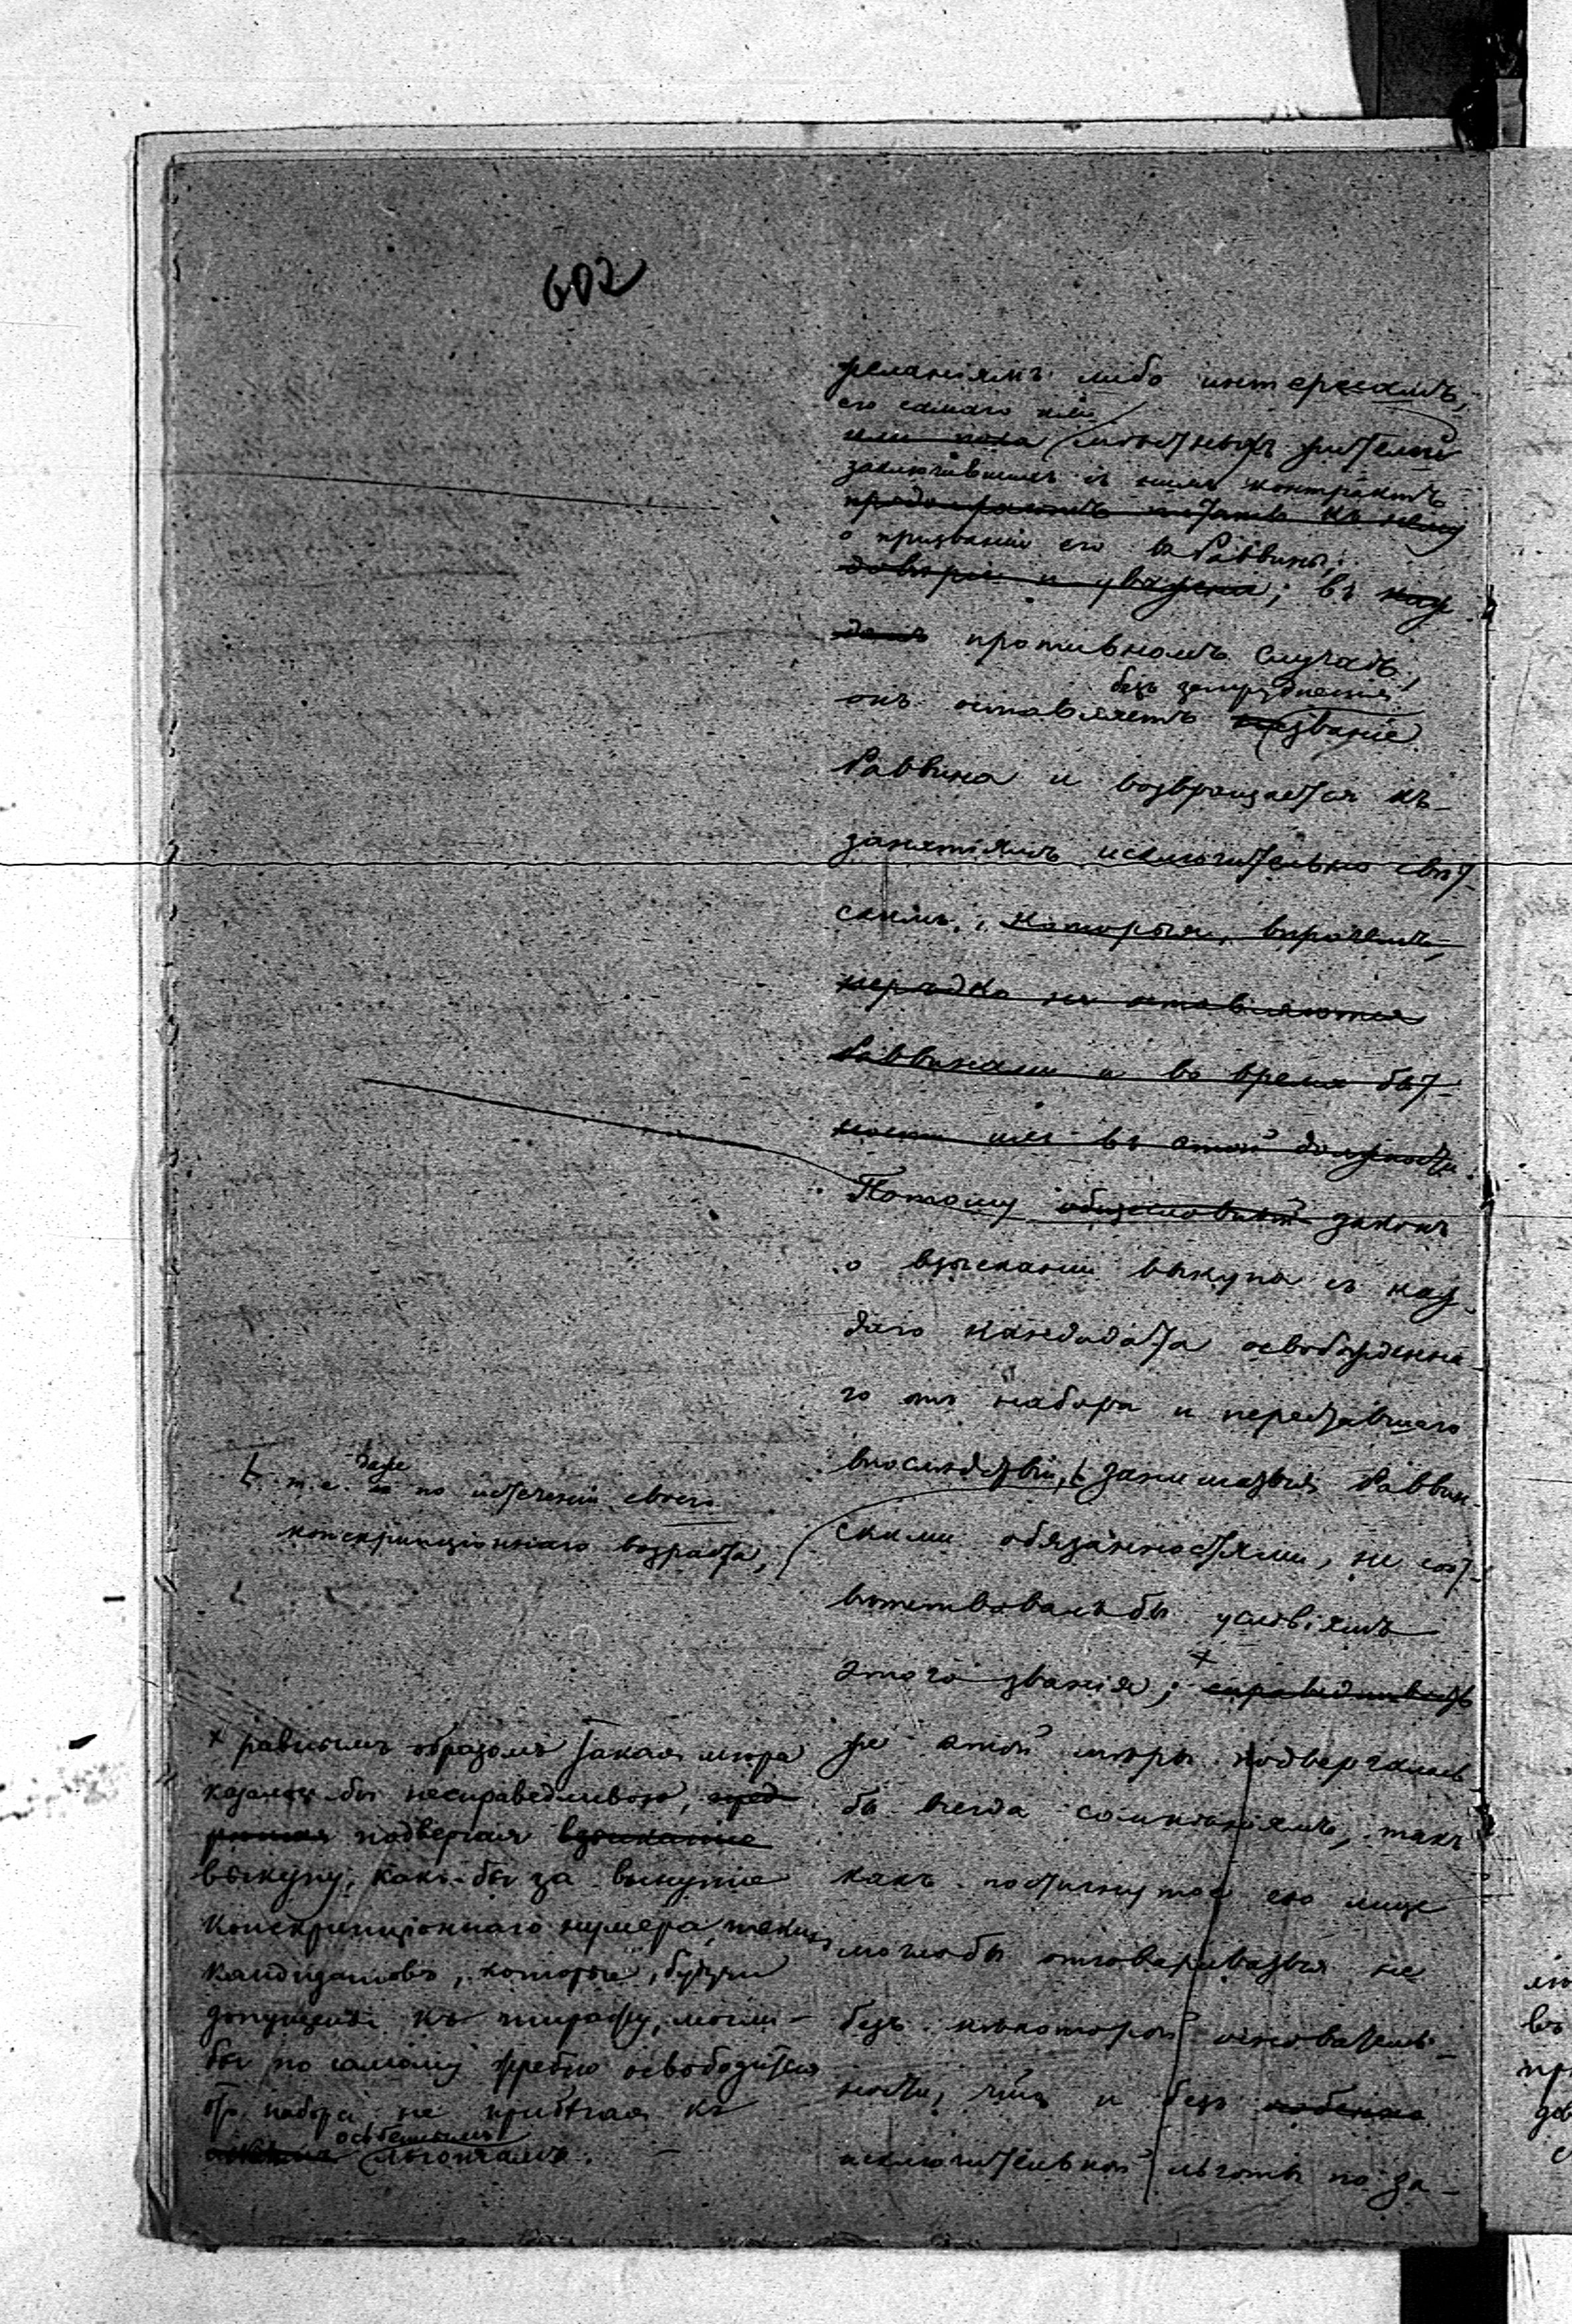 602
желаніямъ либо интересамъ,
его самаго или
или пока мѣстныхъ жителей
заключившихъ съ нимъ контрактъ
продолжаютъ питать къ нему
о призваніи его въ Раввины;
довѣріе и уваженіе; въ каж
домъ противномъ случаѣ,
безъ затрудненія
онъ оставляетъ званіе
Раввина и возвращается къ
занятіямъ исключительно свѣт-
скимъ, которыя, впрочемъ,
нерѣдко не оставляются
Раввинами и во время быт-
ности ихъ въ этой должности.
Потому законъ
о взысканіи выкупа съ каж-
даго кандидата освобожденна-
го отъ набора и переставшаго
впослѣдствіи, заниматься Раввин-
скими обязанностями, не соот-
вѣтствовалъ бы условіямъ
этого званія; + справедливость
же этой мѣры подвергалась
бы всегда сомнѣніямъ, такъ
какъ постигнутое ею лице
могло бы отговариваться не
безъ нѣкоторой основатель-
ности, что и безъ особенно
исключительной льготы по за-
т. е. даже по истеченіи своего
конскрипціоннаго возраста,
+ равнымъ образомъ такая мѣра
казалась бы несправедливою,
подвергая взысканіе
выкупу, какъ-бы за вынутіе
конскрипціоннаго нумера, такихъ
кандидатовъ, которые, будучи
допущены къ тиражу, могли-
бы по самому жребію освободиться
отъ набора, не прибѣгая къ
особеннымъ
льготамъ.